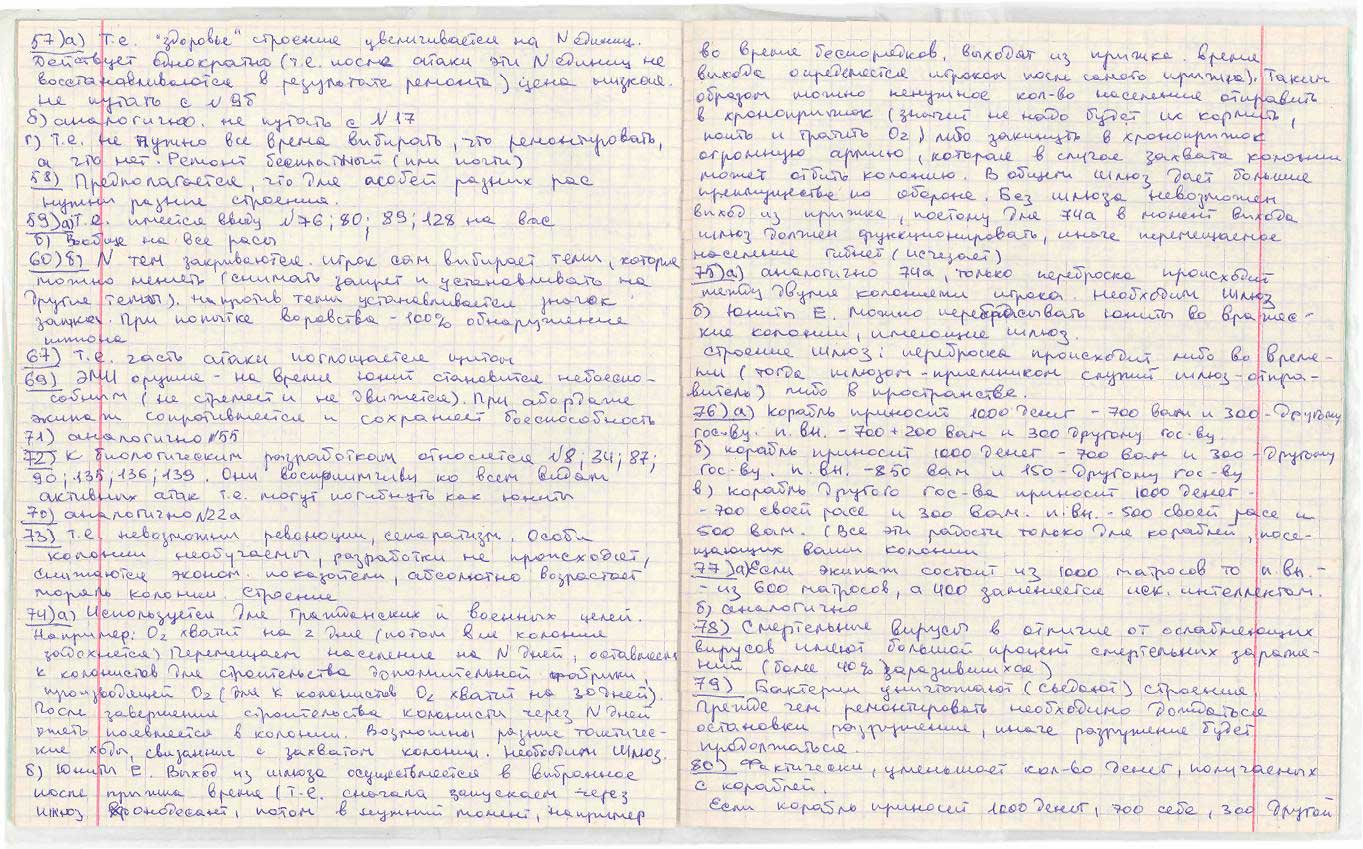 57) а) Т.е. "здоровье" строения увеличивается на N единиц.
Действует однократно (т.е. после атаки эти N единиц не
восстанавливаются в результате ремонта) цена низкая.
не путать с №9б
б) аналогично. не путать с №17
г) Т.е. не нужно все время выбирать, что ремонтировать,
а что нет. Ремонт бесплатный (или почти)
58) Предполагается, что для особей разных рас
нужны разные строения.
59) а) Т.е. имеется ввиду №76; 80; 89; 128 на вас
б) Вообще на все расы
60) в) N тем закрываются. игрок сам выбирает темы, которые
можно менять (снимать запрет и устанавливать на
другие темы). напротив темы устанавливается значок
замка. При попытке воровства - 100% обнаружение
шпиона
67) Т.е. часть атаки поглощается щитом
69) ЭМИ оружие - на время юнит становится небоеспо-
собным (не стреляет и не движется). При абордаже
экипаж сопротивляется и сохраняет боеспособность
71) аналогично №55
72) К биологическим разработкам относятся №8; 34; 87;
90; 135; 136; 139. Они восприимчивы ко всем видам
активных атак т.е. могут погибнуть как юниты
70) аналогично №22а
73) Т.е. невозможны революции, сепаратизм. Особи
колонии необучаемы, разработки не происходят,
снижаются эконом. показатели, абсолютно возрастает
мораль колонии. Строение
74) а) Используется для гражданских и военных целей.
Например: O2 хватит на 2 дня (потом вся колония
задохнется) Перемещаем население на N дней, оставляем
k колонистов для строительства дополнительной фабрики,
производящей O2 (для k колонистов O2 хватит на 30 дней).
После завершения строительства колонисты через N дней
опять появляются в колонии. Возможны разные тактичес-
кие ходы, связанные с захватом колонии. Необходим Шлюз.
б) Юниты Е. Выход из шлюза осуществляется в выбранное
после прыжка время (т.е. сначала запускаем через
шлюз хронодесант, потом в нужный момент, например
во время беспорядков, выходят из прыжка. время
выхода определяется игроком после самого прыжка). Таким
образом можно ненужное кол-во населения отправить
в хронопрыжок (значит не надо будет их кормить,
поить и тратить O2) либо закинуть в хронопрыжок
огромную армию, которая в случае захвата колонии
может отбить колонию. В общем шлюз дает большие
преимущества по обороне. Без шлюза невозможен
выход из прыжка, поэтому для 74а в момент выхода
шлюз должен функционировать, иначе перемещаемое
население гибнет (исчезает)
75) а) аналогично 74а, только переброска происходит
между двумя колониями игрока. Необходим Шлюз
б) Юниты Е. Можно перебрасывать юниты во вражес-
кие колонии, имеющие шлюз.
строение шлюз: переброска происходит либо во време-
ни (тогда шлюзом-приемником служит шлюз-отпра-
витель) либо в пространстве.
76) а) корабль приносит 1000 денег - 700 вам и 300 - другому
гос-ву. п. вн. - 700 + 200 вам и 300 другому гос-ву.
б) корабль приносит 1000 денег - 700 вам и 300 - другому
гос-ву. п. вн. - 850 вам и 150 - другому гос-ву
в) корабль другого гос-ва приносит 1000 денег -
- 700 своей расе и 300 вам. п. вн. - 500 своей расе и
500 вам. (Все эти радости только для кораблей, посе-
щающих ваши колонии
77) а) Если экипаж состоит из 1000 матросов то п. вн. -
- из 600 матросов, а 400 заменяется иск. интеллектом.
б) аналогично
78) Смертельные вирусы в отличие от ослабляющих
вирусов имеют большой процент смертельных зараже-
ний (более 40% заразившихся)
79) Бактерии уничтожают (съедают) строения
Прежде чем ремонтировать необходимо дождаться
остановки разрушения, иначе разрушение будет
продолжаться.
80) Фактически, уменьшает кол-во денег, получаемых
с кораблей.
Если корабль приносит 1000 денег, 700 себе, 300 другой